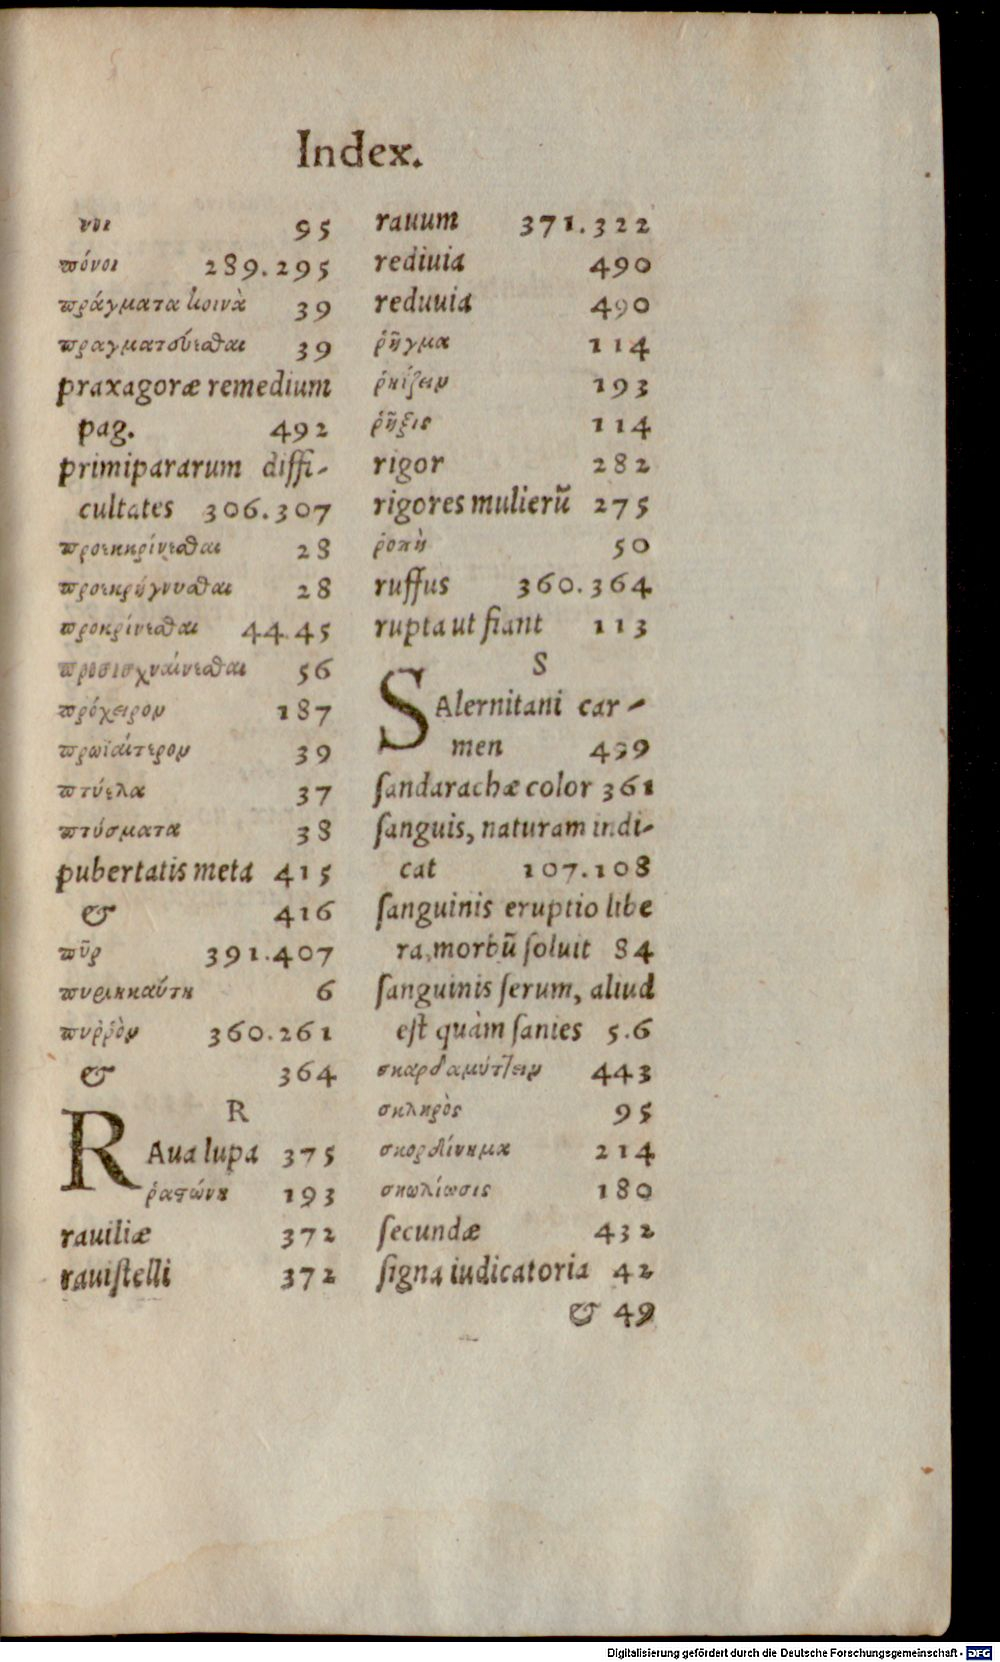 Index.
νοι 95
πόνοι 289.295
πράγματα κοινὰ 39
πραγματεύεσθαι 39
praxagoræ remedium
pag. 492
primipararum diffi-
cultates 306.307
προεκκρίνεσθαι 28
προεκρήγνυσθαι 28
προκρίνεσθαι 44.45
προσισχναίνεσθαι 56
πρόχειρον 187
πρωϊαίτερον 39
πτύελα 37
πτύσματα 38
pubertatis meta 415
& 416
πῦρ 391.407
πυρικκαύτη 6
πυῤῥὸν 360.261
& 364
R
RAua lupa 375
ῥαστώνη 193
rauiliæ 372
rauiſtelli 372
rauum 371.322
rediuia 490
reduuia 490
ῥῆγμα 114
ῥηίζειν 193
ῥῆξις 114
rigor 282
rigores mulierũ 275
ῥοπὴ 50
ruffus 360.364
rupta ut fiant 113
S
SAlernitani car-
men 499
ſandarachæ color 361
ſanguis, naturam indi-
cat 107.108
ſanguinis eruptio libe
ra, morbũ ſoluit 84
ſanguinis ſerum, aliud
eſt quàm ſanies 5.6
σκαρδαμύττειν 443
σκληρὸς 95
σκορδίνημα 214
σκωλίωσις 180
ſecundæ 432
ſigna iudicatoria 42
& 49
Digitalisierung gefördert durch die Deutsche Forschungsgemeinschaft - DFG